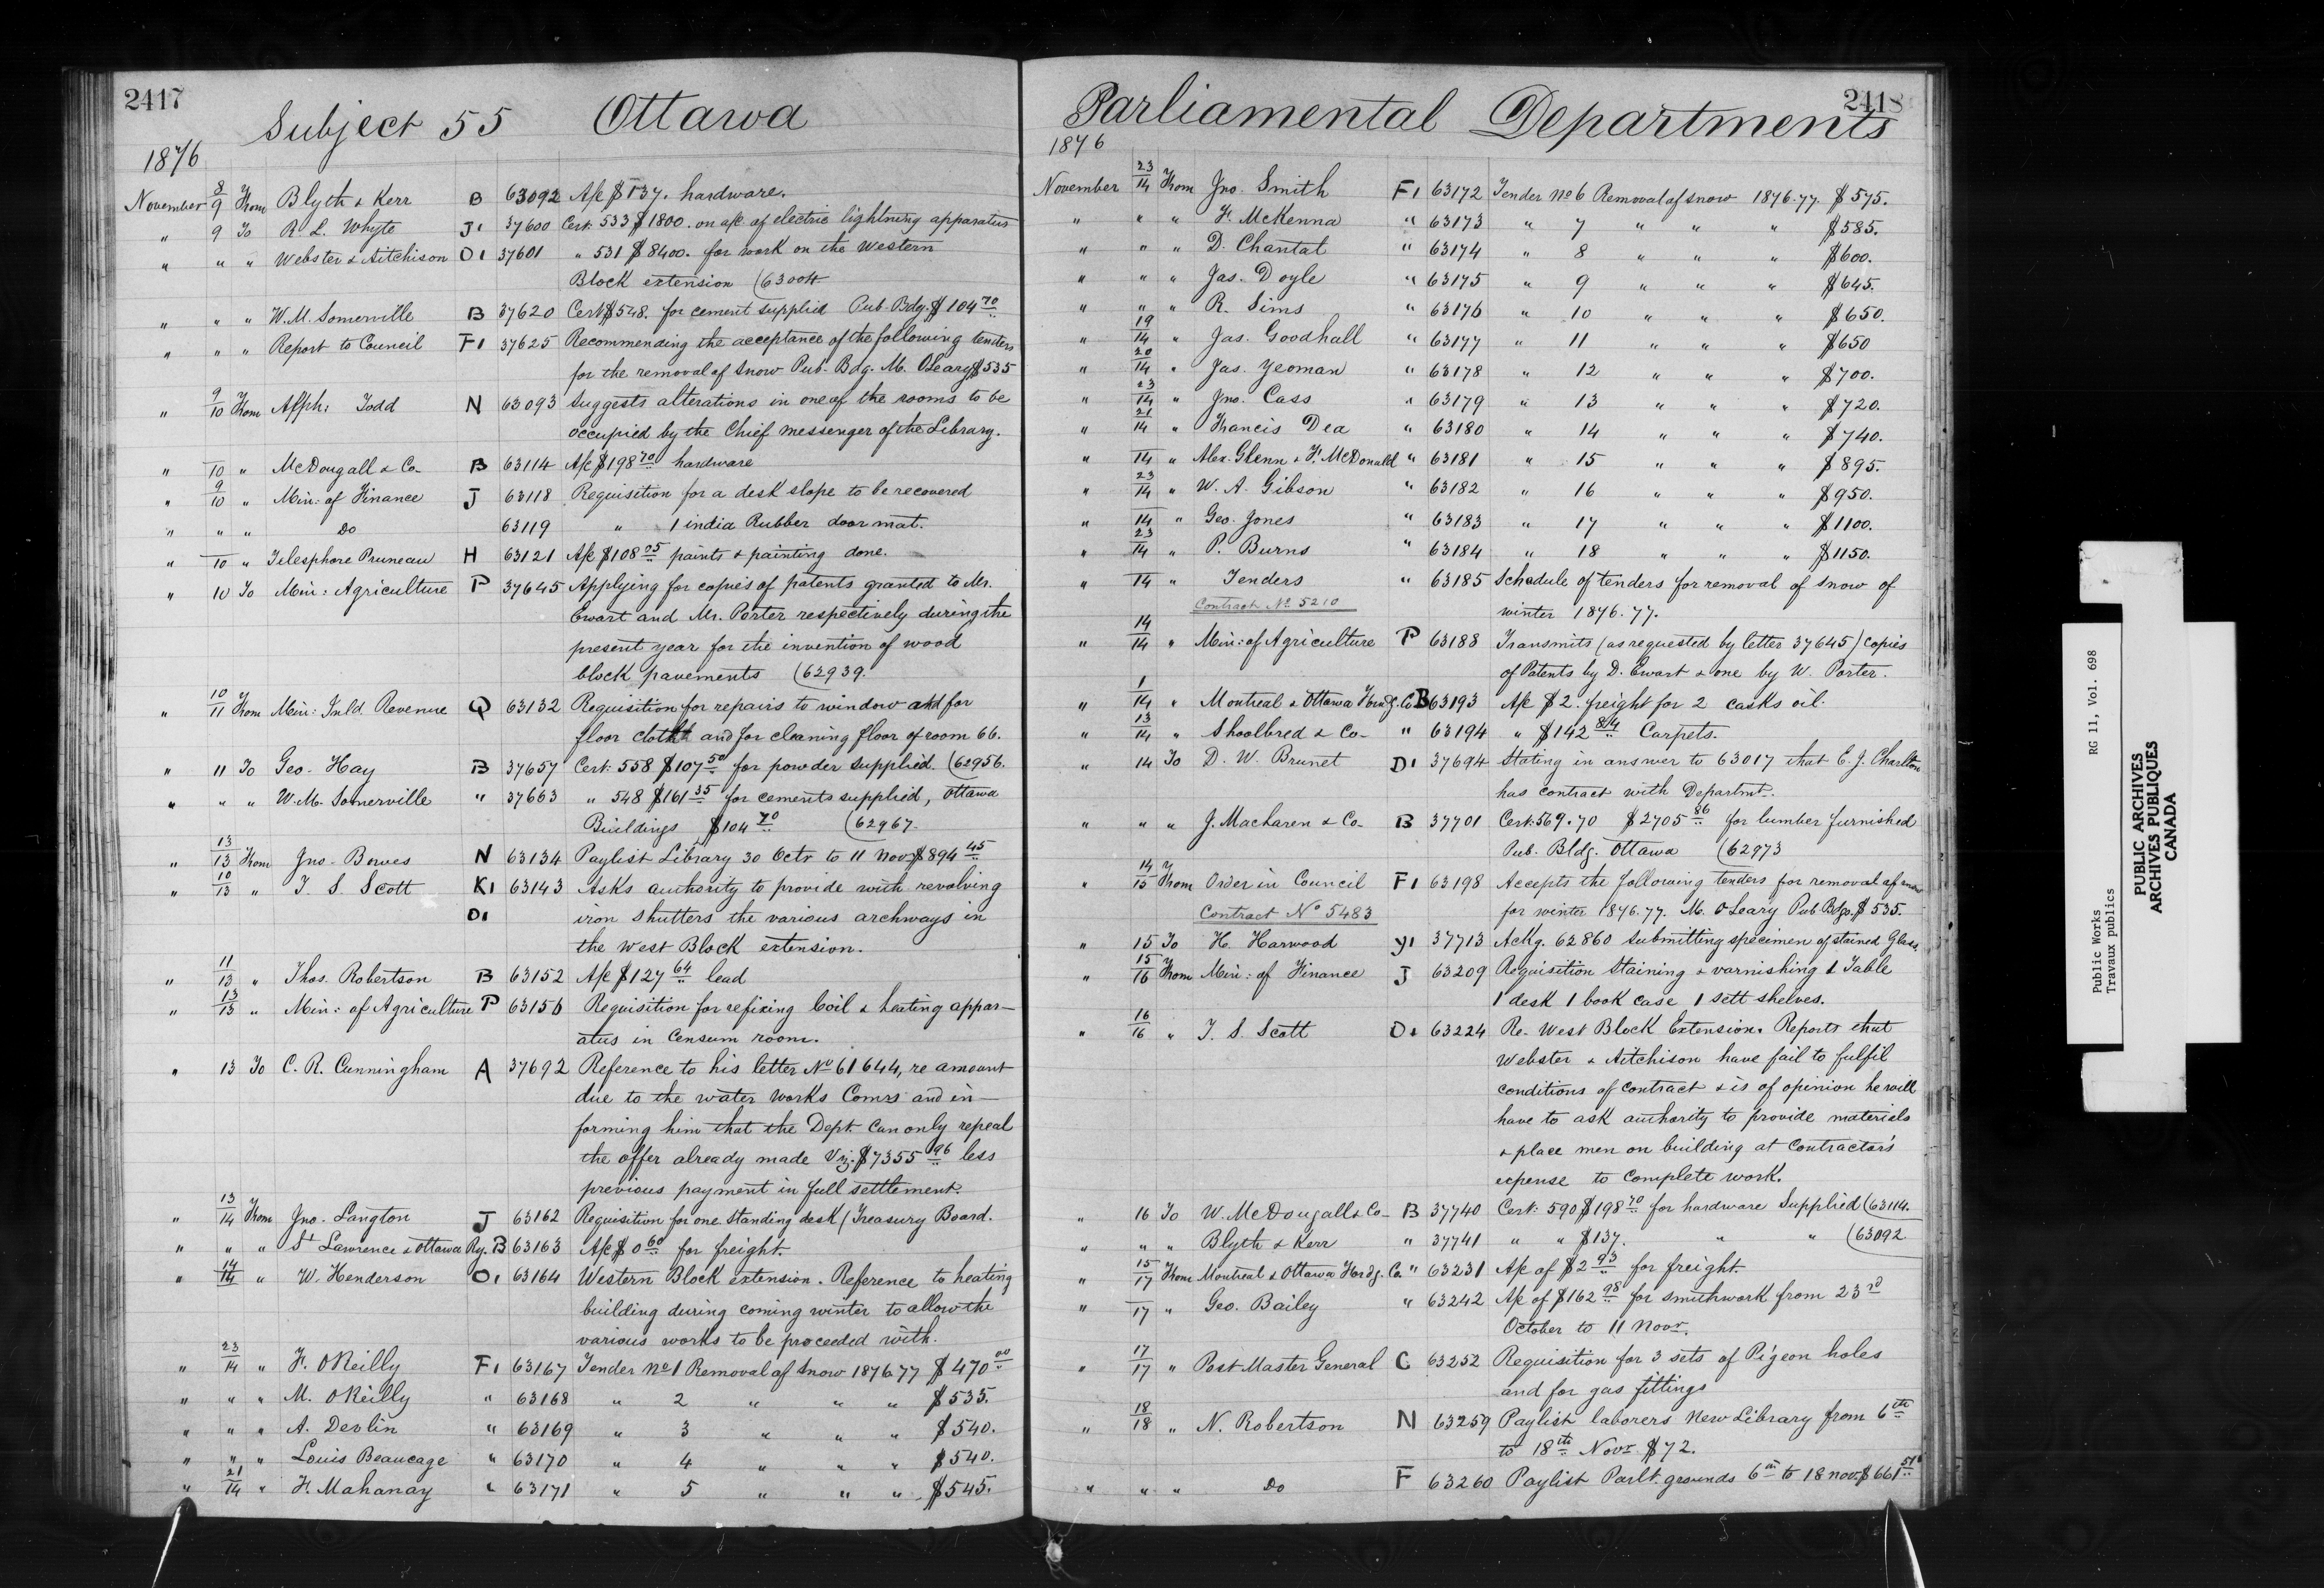 2417
Subject 55 Ottawa
1876
November 8/9 From Blyth & Kerr B 63092 A/c $137. hardware.
" 9 To R. L. Whyte J1 37600 Cert. 533 $1800. on a/c of electric lightning apparatus
" " " Webster & Aitchison O1 37601 " 531 $8400. for work on the Western
Block extension (63004
" " " W. M. Somerville B 37620 Cert $548. for cement supplied Pub. Bdg. $104 70
" " " Report to Council F1 37625 Recommending the acceptance of the following tenders
for the removal of snow Pub. Bdg. M. OLeary $535
" 9/10 From Alph: Todd N 63093 Suggests alterations in one of the rooms to be
occupied by the Chief messenger of the Library.
" /10 " McDougall & Co B 63114 A/c $198 70 hardware
" 9/10 " Min: of Finance J 63118 Requisition for a desk slope to be recovered
" " " Do 63119 " 1 india Rubber door mat.
" /10 " Telesphore Pruneau H 63121 A/c $108 05 paints & painting done.
" 10 To Min: Agriculture P 37645 Applying for copies of patents granted to Mr.
Ewart and Mr. Porter respectively during the
present year for the invention of wood
block pavements (62939.
" 10/11 From Min: Inld. Revenue Q 63132 Requisition for repairs to window and for
floor cloth and for cleaning floor of room 66.
" 11 To Geo. Hay B 37657 Cert. 558 $107 50 for powder supplied. (62956.
" " " W. M. Somerville " 37663 " 548 $161 35 for cements supplied, Ottawa
Buildings $104 70 (62967.
" 13/13 From Jno. Bowes N 63134 Paylist Library 30 Octr to 11 Nov. $894 45
" 10/13 " T. S. Scott K1 63143 Asks authority to provide with revolving
O1 iron shutters the various archways in
the West Block extension.
" 11/13 " Thos. Robertson B 63152 A/c $127 64 lead
" 13/13 " Min: of Agriculture P 63156 Requisition for refixing Coil & heating appar-
atus in Censum room.
" 13 To C. R. Cunningham A 37692 Reference to his letter No 61644, re amount
due to the water works Comrs and in-
forming him that the Dept. Can only repeal
the offer already made Viz. $7355 96 less
previous payment in full settlement.
" 13/14 From Jno. Langton J 63162 Requisition for one standing desk (Treasury Board.
" " " St Lawrence & Ottawa Ry. B 63163 A/c $0 60 for freight.
" 14/14 " W. Henderson O1 63164 Western Block extension. Reference to heating
building during coming winter to allow the
various works to be proceeded with.
" 23/14 " F. OReilly F1 63167 Tender No 1 Removal of Snow 1876.77 $470 00
" " " M. OReilly " 63168 " 2 " " " $535.
" " " A. Devlin " 63169 " 3 " " " $540.
" " " Louis Beaucage " 63170 " 4 " " " $540.
" 21/14 " F. Mahanay " 63171 " 5 " " " $545.
2418
Parliamental Departments
1876
November 23/14 From Jno. Smith F1 63172 Tender No 6 Removal of snow 1876.77. $575.
" " " F. McKenna " 63173 " 7 " " " $585.
" " " D. Chantal " 63174 " 8 " " " $600.
" " " Jas. Doyle " 63175 " 9 " " " $645.
" " " R. Sims " 63176 " 10 " " " $650.
" 19/14 " Jas. Goodhall " 63177 " 11 " " " $650
" 20/14 " Jas. Yeoman " 63178 " 12 " " " $700.
" 23/14 " Jno. Cass " 63179 " 13 " " " $720.
" 21/14 " Francis Dea " 63180 " 14 " " " $740.
" /14 " Alex. Glenn & F. McDonald " 63181 " 15 " " " $895.
" 23/14 " W. A. Gibson " 63182 " 16 " " " $950.
" /14 " Geo. Jones " 63183 " 17 " " " $1100.
" 23/14 " P. Burns " 63184 " 18 " " " $1150.
" /14 " Tenders " 63185 Schedule of tenders for removal of snow of
Contract No 5210 winter 1876.77.
" 14/14 " Min: of Agriculture P 63188 Transmits (as requested by letter 37645) copies
of Patents by D. Ewart & one by W. Porter.
" 1/14 " Montreal & Ottawa Forwdg. Co B 63193 A/c $2. freight for 2 casks oil.
" 13/14 " Shoolbred & Co " 63194 " $142 84 Carpets.
" 14 To D. W. Brunet D1 37694 Stating in answer to 63017 that E. J. Charlton
has contract with Departmt.
" " " J. Maclaren & Co B 37701 Cert. 569.70 $2705 86 for lumber furnished
Pub. Bldg. Ottawa (62973
" 14/15 From Order in Council F1 63198 Accepts the following tenders for removal of snow
Contract No 5483 for winter 1876.77. M. OLeary Pub. Bdgs. $535.
" 15 To H. Harwood Y1 37713 Ackg. 62860 submitting specimen of stained Glass
" 15/16 From Min: of Finance J 63209 Requisition staining & varnishing 1 Table
1 desk 1 book case 1 sett shelves.
" 16/16 " T. S. Scott O1 63224 Re. West Block Extension. Reports that
Webster & Aitchison have fail to fulfil
conditions of contract & is of opinion he will
have to ask authority to provide materiels
& place men on building at Contractor's
expense to complete work.
" 16 To W. McDougall & Co B 37740 Cert. 590 $198 70 for hardware Supplied (63114.
" " " Blyth & Kerr " 37741 " " $137. " " (63092
" 15/17 From Montreal & Ottawa Forwdg. Co. " 63231 A/c of $2 93 for freight.
" /17 " Geo. Bailey " 63242 A/c of $162 98 for smithwork from 23rd
October to 11 Novr.
" 17/17 " Post Master General C 63252 Requisition for 3 sets of Pigeon holes
and for gas fittings
" 18/18 " N. Robertson N 63259 Paylist laborers New Library from 6th
to 18th Novr. $72.
" " " Do F 63260 Paylist Parlt. grounds 6th to 18 nov. $661 51
Public Works RG 11, Vol. 698
Travaux publics
PUBLIC ARCHIVES
ARCHIVES PUBLIQUES
CANADA